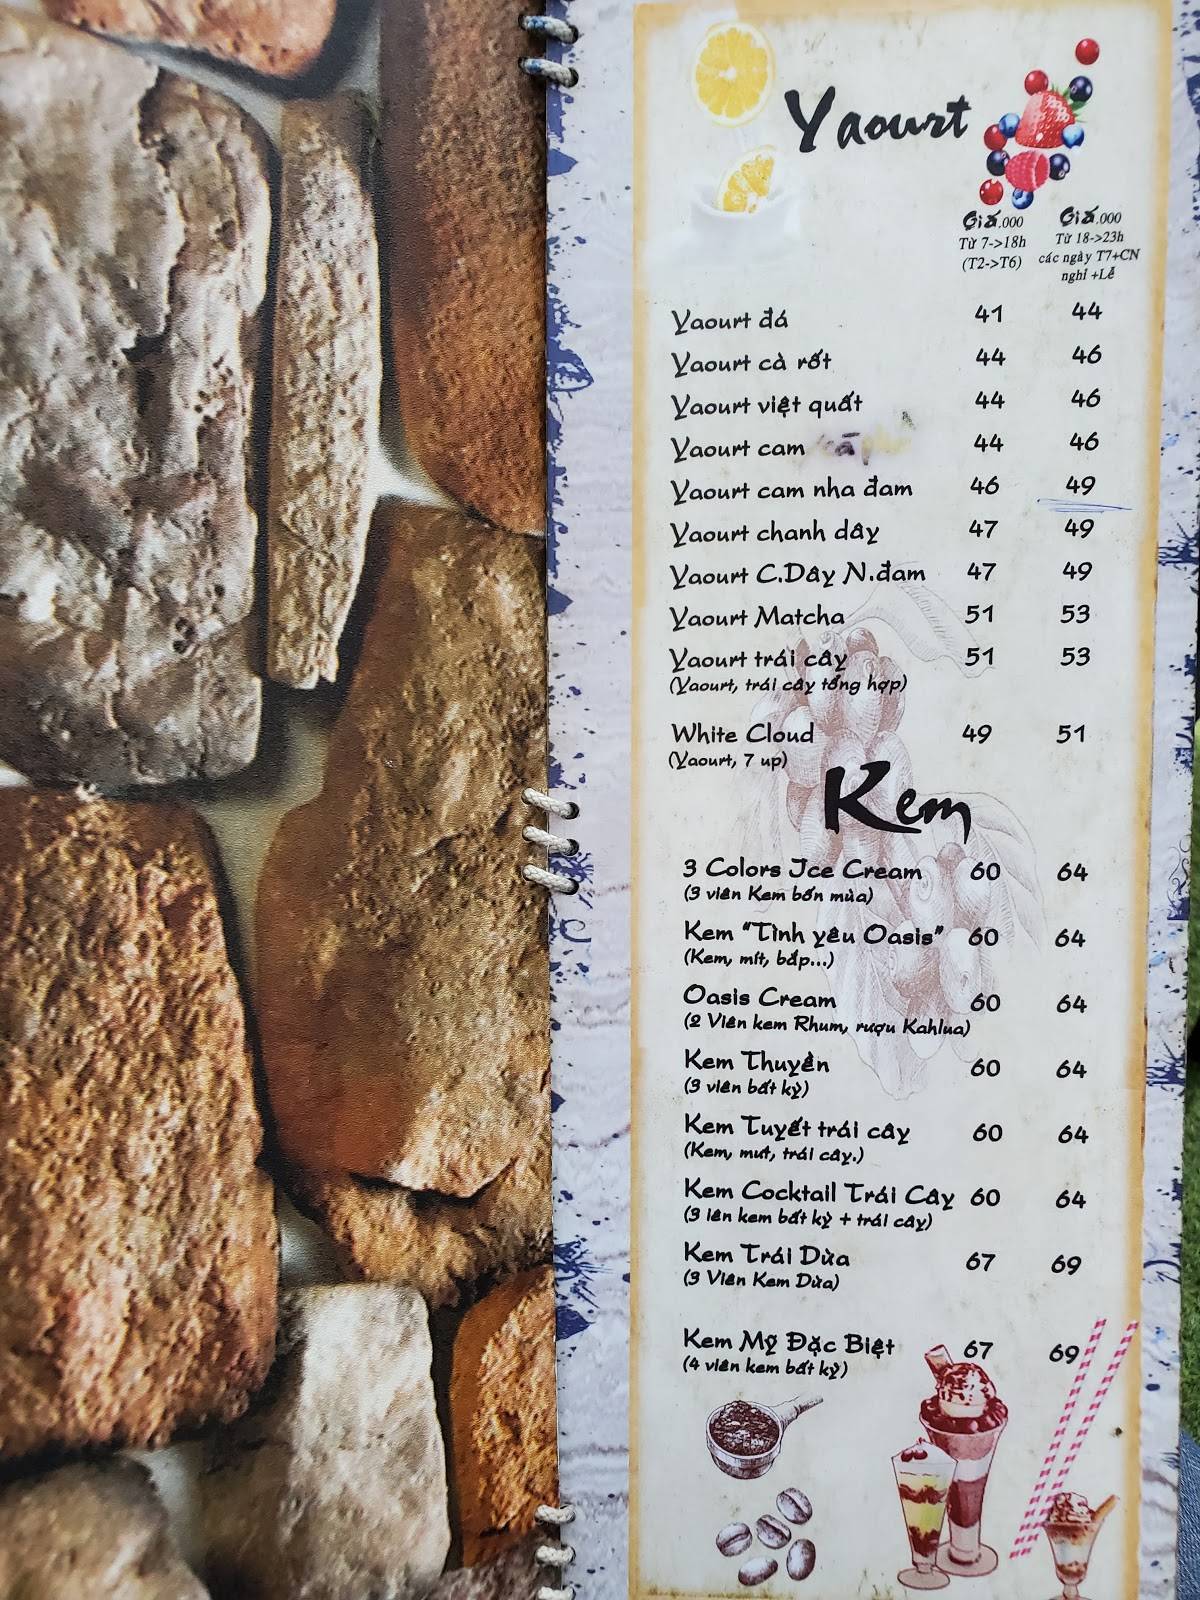 Yaourt
Giá.000 Giá.000
Từ 7->18h Từ 18->23h
(T2->T6) các ngày T7+CN
nghỉ +Lễ
Yaourt đá 41 44
Yaourt cà rốt 44 46
Yaourt việt quất 44 46
Yaourt cam 44 46
Yaourt cam nha đam 46 49
Yaourt chanh dây 47 49
Yaourt C.Dây N.đam 47 49
Yaourt Matcha 51 53
Yaourt trái cây 51 53
(Yaourt, trái cây tổng hợp)
White Cloud 49 51
(Yaourt, 7 up)
Kem
3 Colors Ice Cream 60 64
(3 viên Kem bốn mùa)
Kem “Tình yêu Oasis” 60 64
(Kem, mít, bắp...)
Oasis Cream 60 64
(2 Viên kem Rhum, rượu Kahlua)
Kem Thuyền 60 64
(3 viên bất kỳ)
Kem Tuyết trái cây 60 64
(Kem, mut, trái cây.)
Kem Cocktail Trái Cây 60 64
(3 iên kem bất kỳ + trái cây)
Kem Trái Dừa 67 69
(3 Viên Kem Dừa)
Kem Mỹ Đặc Biệt 67 69
(4 viên kem bất kỳ)